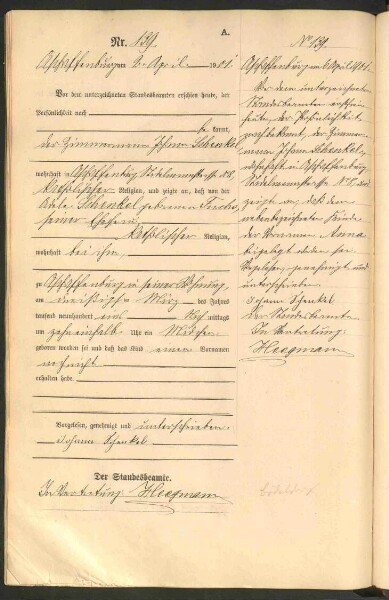 A.
Nr. 139.
Aschaffenburg am 2. April 1901
Vor dem unterzeichneten Standesbeamten erschien heute, der
Persönlichkeit nach
be kannt,
der Zimmermann Johann Schenkel,
wohnhaft in Aschaffenburg
katholischer Religion, und zeigte an, daß von der
Schenkel geborenen Fuchs,
seiner Ehefrau,
katholischer Religion,
wohnhaft bei ihm,
zu Aschaffenburg in seiner Wohnung,
am März des Jahres
tausend neunhundert eins Vormittags
um zehneinhalb Uhr ein Mädchen
geboren worden sei und daß das Kind einen Vornamen
noch nicht
erhalten habe.
Vorgelesen, genehmigt und unterschrieben
Johann Schenkel
Der Standesbeamte.
In Vertretung Hegmann
No 139.
Aschaffenburg am April 1901
Vor dem unterzeichneten
Standesbeamten erschien
heute, der Persönlichkeit
nach bekannt, der Zimmer-
mann Johann Schenkel,
wohnhaft in Aschaffenburg
und
zeigte an, daß dem
nebenbezeichneten Kinde
der Vornamen Anna
beigelegt worden sei
Vorgelesen, genehmigt und
unterschrieben
Johann Schenkel
Der Standesbeamte
In Vertretung
Hegmann